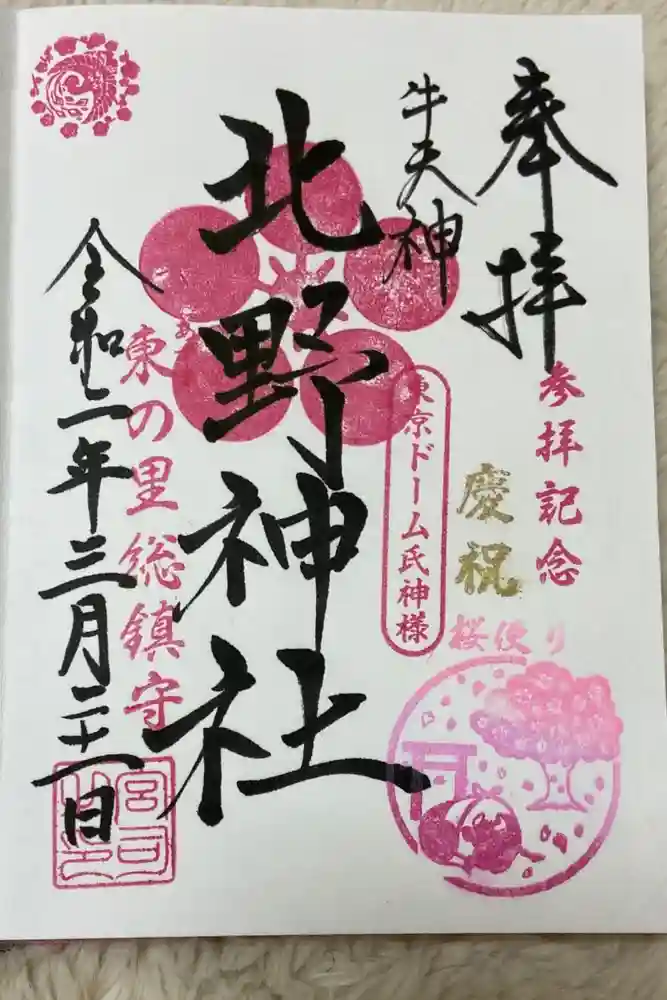 奉拝
参拝記念
慶祝
桜便り
牛天神
東京ドーム氏神様
北野神社
東の里総鎮守
令和二年三月二十一日
宮司
之印